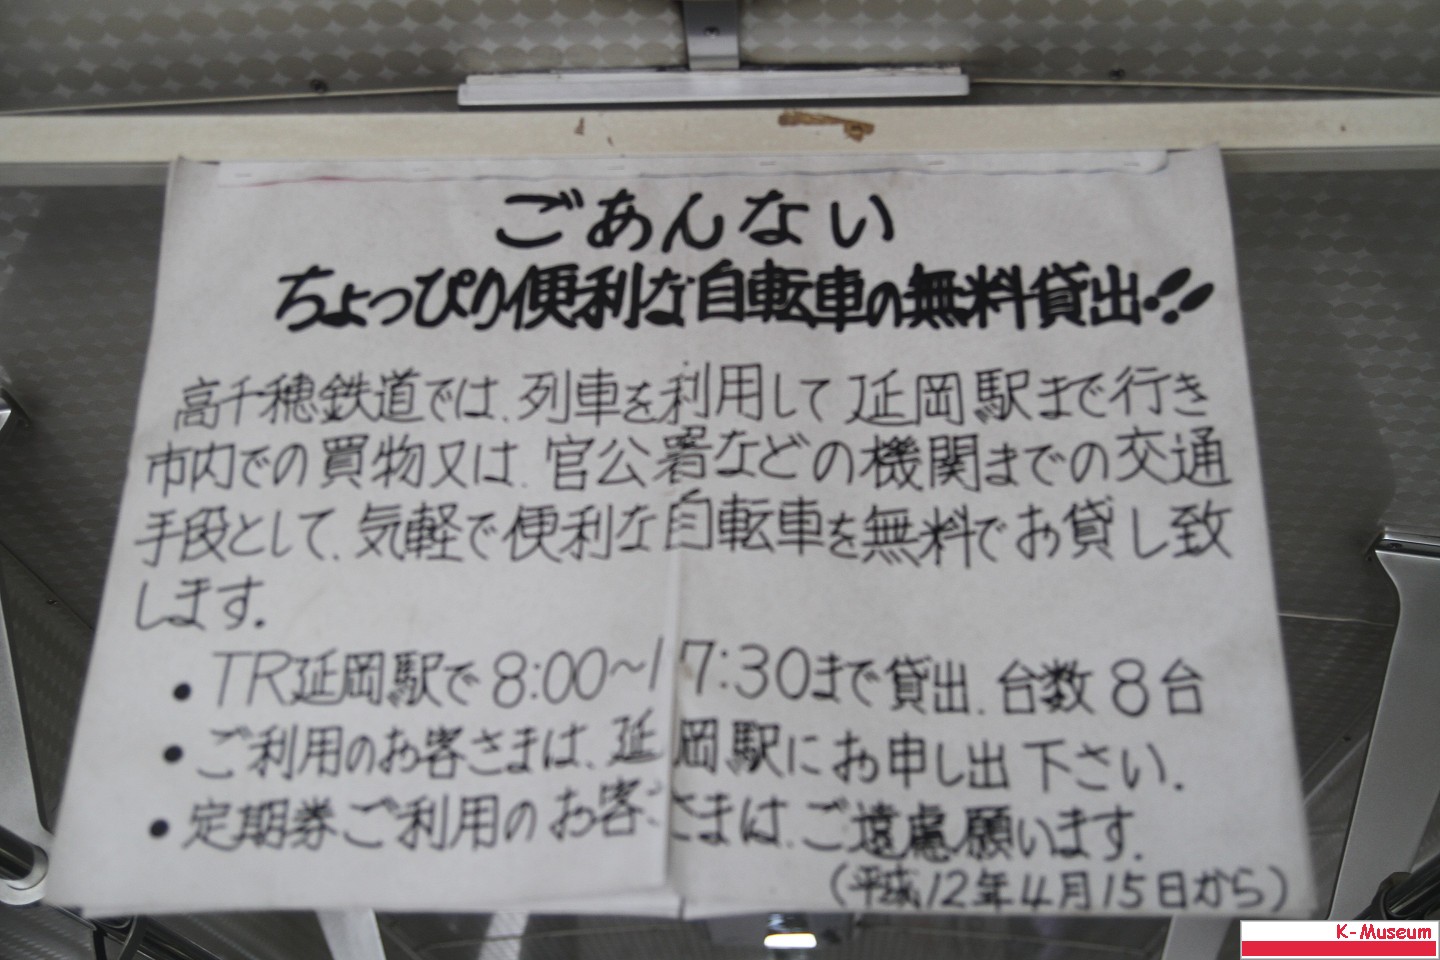 ごあんない
ちょっぴり便利な自転車の無料貸出!!
高千穂鉄道では、列車を利用して延岡駅まで行き
市内での買物又は、官公署などの機関までの交通
手段として、気軽で便利な自転車を無料でお貸し致
します。
・TR延岡駅で8:00～17:30まで貸出、台数8台
・ご利用のお客さまは、延岡駅にお申し出下さい。
・定期券ご利用のお客さまは、ご遠慮願います。
(平成12年4月15日から)
K-Museum